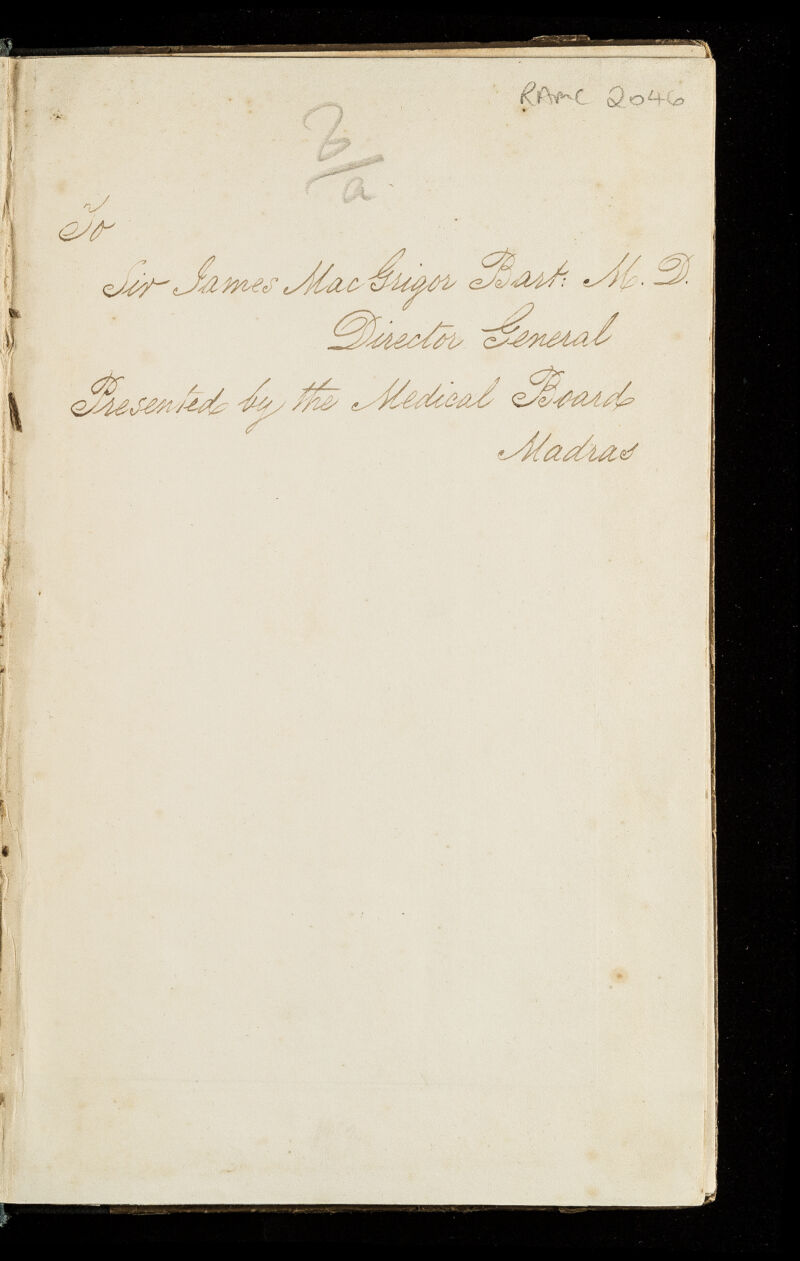 RAMC 2046
To
Sir James MacGrigor Bart: M. D.
Director General
Presented by the Medical Board
Madras